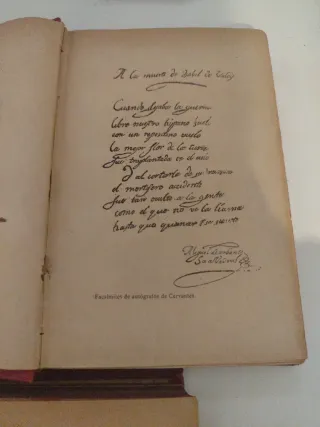 A la muerte de Isabel de
Cuando dejaba la guerra
libre nuestro hispano suelo
con un repentino vuelo
la mejor flor de la tierra
fue trasplantada en el cielo
Y al cortarla de su rama
el mortifero accidente
fue tan oculta a la gente
como el que no ve la llama
hasta que quemar se siente
Miguel de Cerbantes
Saavedra
Facsímiles de autógrafos de Cervantes